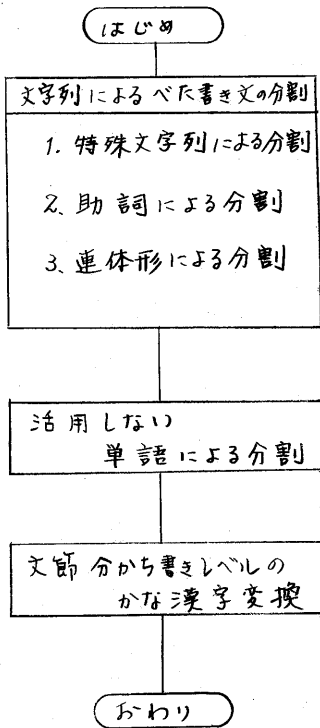 はじめ
文字列によるべた書き文の分割
1. 特殊文字列による分割
2. 助詞による分割
3. 連体形による分割
活用しない
単語による分割
文節分かち書きレベルの
かな漢字変換
おわり